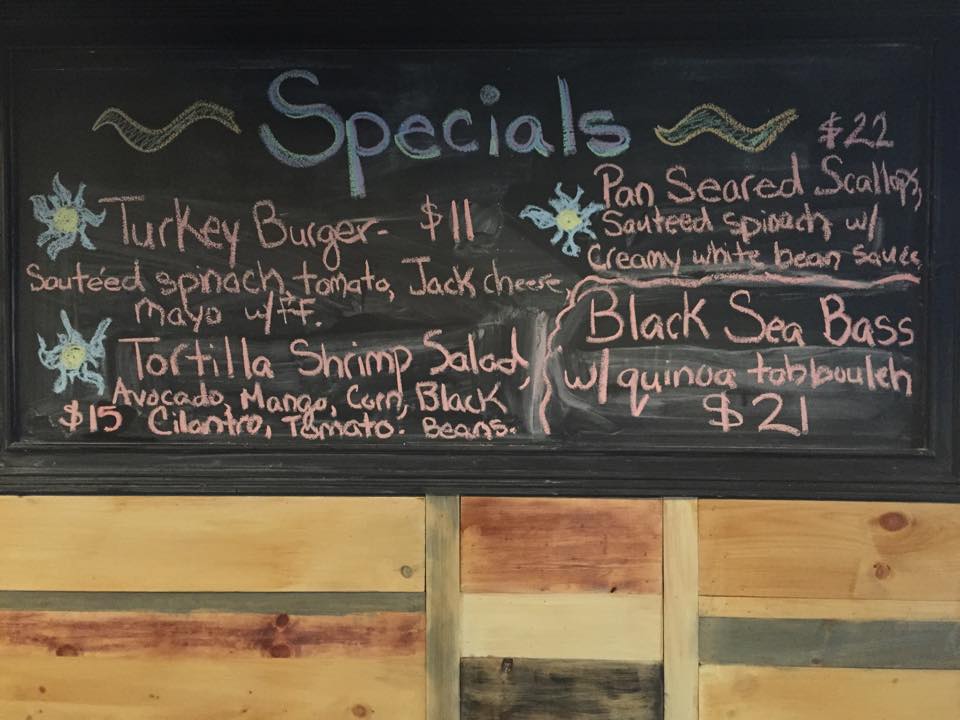 Specials
Turkey Burger- $11
Sauteéd spinach, tomato, Jack cheese,
Mayo w/FF.
Tortilla Shrimp Salad,
Avocado, Mango, Corn, Black
$15 Cilantro, Tomato. Beans.
$22
Pan Seared Scallops,
Sauteed spinach w/
Creamy white bean sauce
Black Sea Bass
w/ quinoa tabbouleh
$21